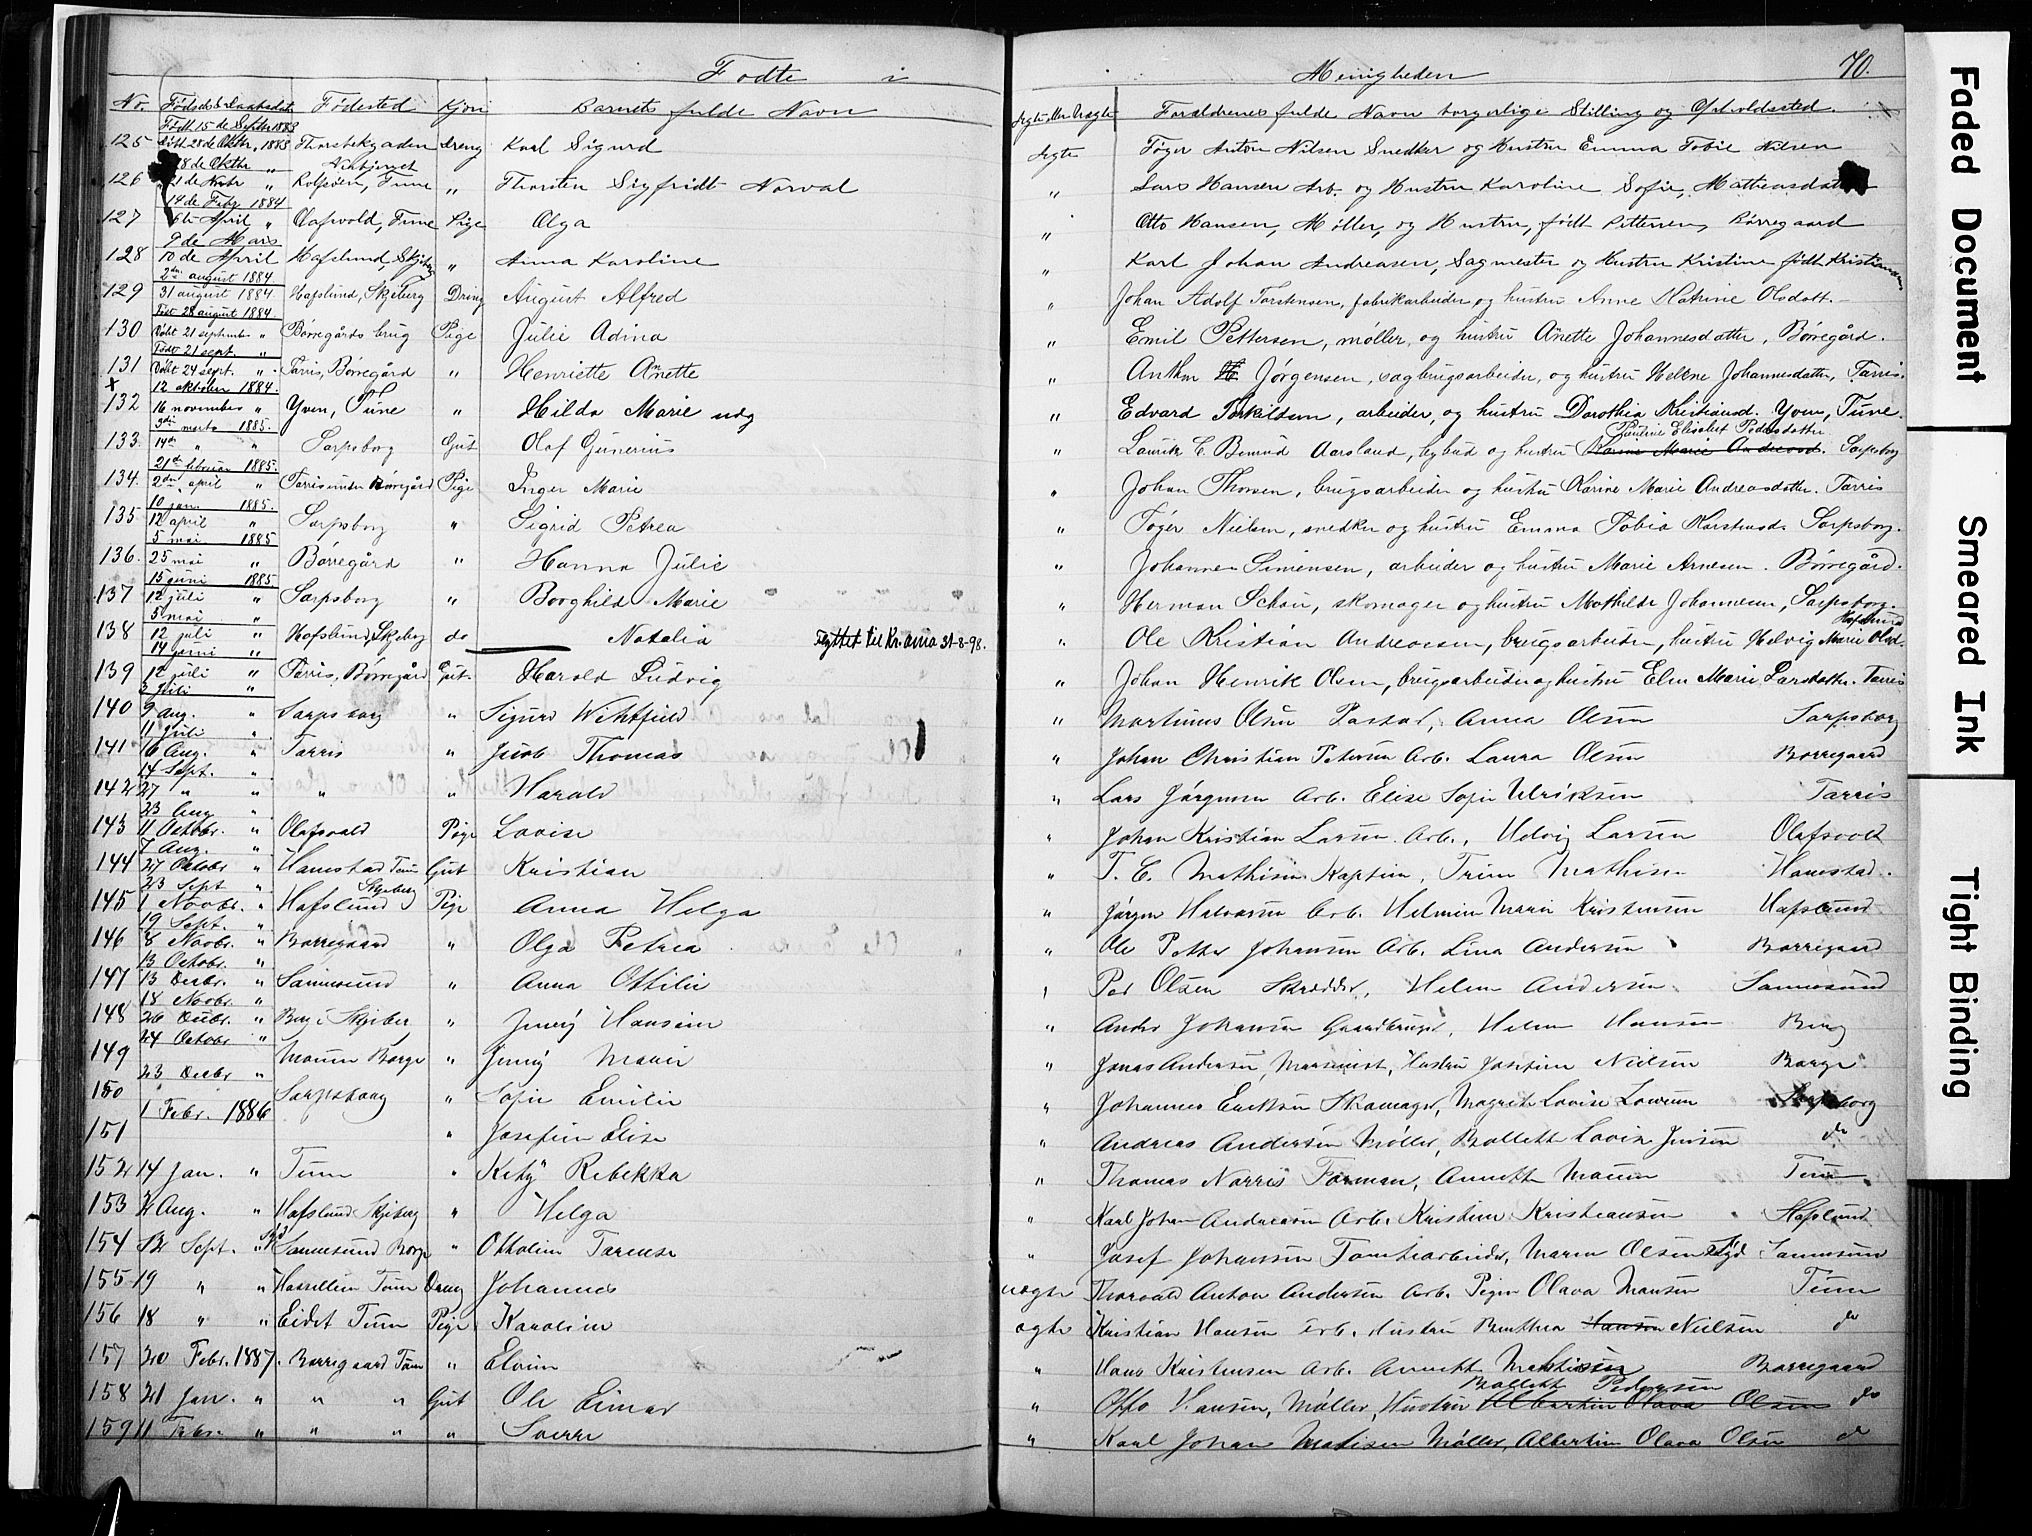 Fødte i Menigheden 70.
No. Føds. & Daabsdat Fødested Kjøn Barnets fulde Navn Ægte eller Uægte Forældrenes fulde Navn borgerlige Stilling og Opholdssted.
Født 15 de Septbr 1883
125 døbt 28 de Oktbr. 1883 Thorsbekgaden dreng Karl Sigurd Ægte Tøger Anton Nilsen Snedker og Hustru Emma Tobie Nilsen
28 de Oktbr „
126 21 de Novbr „ Rolfsøen, Tune „ Thorsten Sigfridt Norval „ Lars Hansen Arb. og Hustru Karoline Sofie, Matheasdatter
14 de Febr 1884
127 6te April „ Olafsvold, Tune Pige Olga „ Otto Hansen, Møller, og Hustru, født Pettersen, Borregaard
9 de Mars
128 10 de April Hafslund, Skjeberg „ Anna Karoline „ Karl Johan Andreasen, Sagmester og Hustru Kristine født Kristiansen
2den august 1884
129 31 august 1884 Hafslund, Skjeberg Dreng August Alfred „ Johan Adolf Torstensen, fabrikarbeider og hustru Anne Katrine Olsdatt.
Født 28 august 1884
130 Døbt 21 september „ Børregårds brug Pige Julie Adina „ Emil Pettersen, møller, og hustru Anette Johannesdatter, Børregård.
Født 21 sept. „
131 Døbt 24 sept. „ Tarris, Børregård „ Henriette Anette „ Anthon H Jørgensen, sagbrugsarbeider, og hustru Helene Johannesdatter, Tarris.
x 12 oktober 1884
132 16 november „ Yven, Tune „ Hilda Marie udg „ Edvard Torkildsen, arbeider, og hustru Dorothia Kristiansd. Yven, Tune.
3die marts 1885. Pauline Elisabet Pedersdatter
133. 14de „ „ Sarpsborg Gut Olaf Gunerius „ Laurits C. Bernud Aarsland, bybud og hustru Karine Marie Andreasd. Sarpsborg
21de februar 1885.
134. 2den april „ Tarris under Børregård Pige Inger Marie „ Johan Thorsen, brugsarbeider og hustru Karine Marie Andreasdatter. Tarris
10 jan. 1885.
135 12 april „ Sarpsborg „ Sigrid Petrea „ Tøger Nielsen, snedker og hustru Emma Tobia Karstensd. Sarpsborg.
5 mai 1885
136. 25 mai „ Børregård „ Hanna Julie „ Johannes Simensen, arbeider og hustru Marie Arnesen. Børregård.
15 juni 1885.
137 12 juli „ Sarpsborg „ Borghild Marie „ Herman Schou, skomager og hustru Mathilde Johannesen, Sarpsborg.
5 mai „ Hafslund
138 12 juli „ Hafslund, Skjeberg do Natalia Flyttet til Kr.ania 31-8-98. „ Ole Kristian Andreassen, brugsarbeider, hustru Helvig Marie Olsd.
14 juni „
139 12 juli „ Tarris, Børregård Gut. Harald Ludvig „ Johan Henrik Olsen, brugsarbeider og hustru Elen Marie Larsdatter. Tarris
3 Juli „
140 9 Aug. „ Sarpsborg „ Sigurd Wihtfield „ Martinus Olsen Pastor, Anna Olsen Sarpsborg
11 Juli „
141 16 Aug. „ Tarris „ Jacob Thomas „ Johan Christian Petersen Arb. Laura Olsen Borregaard
14 Sept. „
142 27 „ „ „ „ Harald „ Lars Jørgensen Arb. Elise Sofie Ulriksen Tarris
23 Aug „
143 11 Octobr. „ Olafsvold Pige Lovise „ Johan Kristian Larsen Arb., Hedvig Larsen Olafsvold
7 Aug. „
144 27 Octobr „ Hannestad Tune Gut Kristian „ T. C. Mathisen Kaptein, Trine Mathisen Hannestad.
23 Sept „ Skjeberg
145 1 Novbr. „ Hafslund Pige Anna Helga „ Jørgen Halvorsen Arb. Helmine Marie Kristensen Hafslund
19 Sept. „
146 8 Novbr. „ Borregaard „ Olga Petrea „ Ole Petter Johansen Arb. Lina Andersen Borregaard
13 Octobr. „
147 13 Decbr. „ Sannesund „ Anna Ottilie „ Per Olsen Skrædder, Helene Andersen Sannesund
18 Novbr. „
148 26 Decbr. „ Berg i Skjeber „ Jenny Hansine „ Andr. Johansen Gaardbruger, Helene Hansen Berg
24 Octobr „
149 Moum Borge „ Jenny Marie „ Jonas Andersen, Maskinist, Hustru Josefine Nielsen Borge
23 Decbr „
150 Sarpsborg „ Sofie Emilie „ Johannes Eriksen Skomager, Magrete Lovise Larsen Sarpsborg
1 Febr. 1886
151 „ Josefine Elise „ Andreas Andersen Møller, Bollette Lovise Jensen do
152 14 Jan. „ Tune „ Kety Rebekka „ Thomas Norris Forman, Annette Moum Tune
153 2 Aug. „ Hafslund Skjeberg „ Helga „ Karl Johan Andreasen Arb. Kristine Kristiansen Hafslund
154 12 Sept. „ Sannesund Borge „ Ottoline Tarense „ Josef Johansen Tomtearbeider, Maren Olsen Sannesund
155 19 „ „ Hasrellien Tune Dreng Johannes uægte Thorvald Anton Andersen Arb. Pigen Olava Hansen Tune
156 18 „ „ Eidet Tune Pige Karoline ægte Kristian Hansen Arb. Hustru Benthea Hansen Nielsen do
157 20 Febr. 1887. Borregaard Tune „ Elvine „ Hans Kristensen Arb. Annette Mathisen Borregaard
Bollette Pedersen
158 21 Jan. „ „ „ Gut Ole Einar „ Otto Hansen, Møller, Hustru Albertine Olava Olsen do
159 11 Febr. „ „ „ „ Sverre „ Karl Johan Madisen Møller, Albertine Olava Olsen do
Faded Document
Smeared Ink
Tight Binding